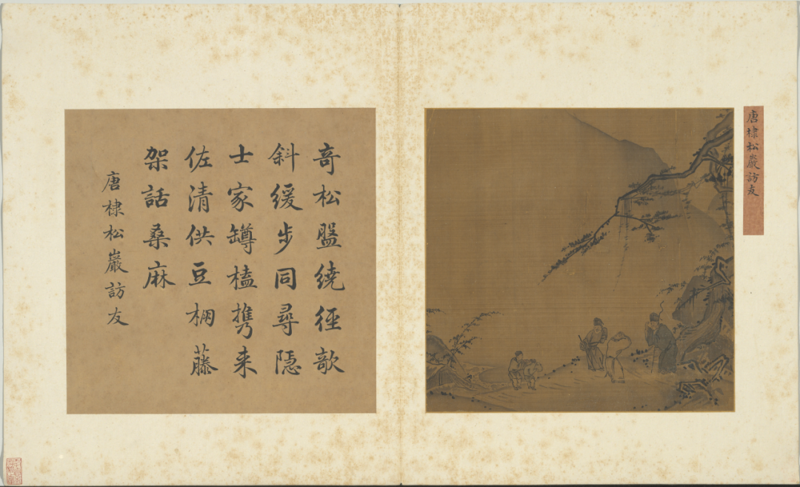 唐棣松巖訪友
竒松盤繞徑欹
斜緩步同尋隱
士家罇榼携来
佐清供豆棚藤
架話桑麻
唐棣松巖訪友